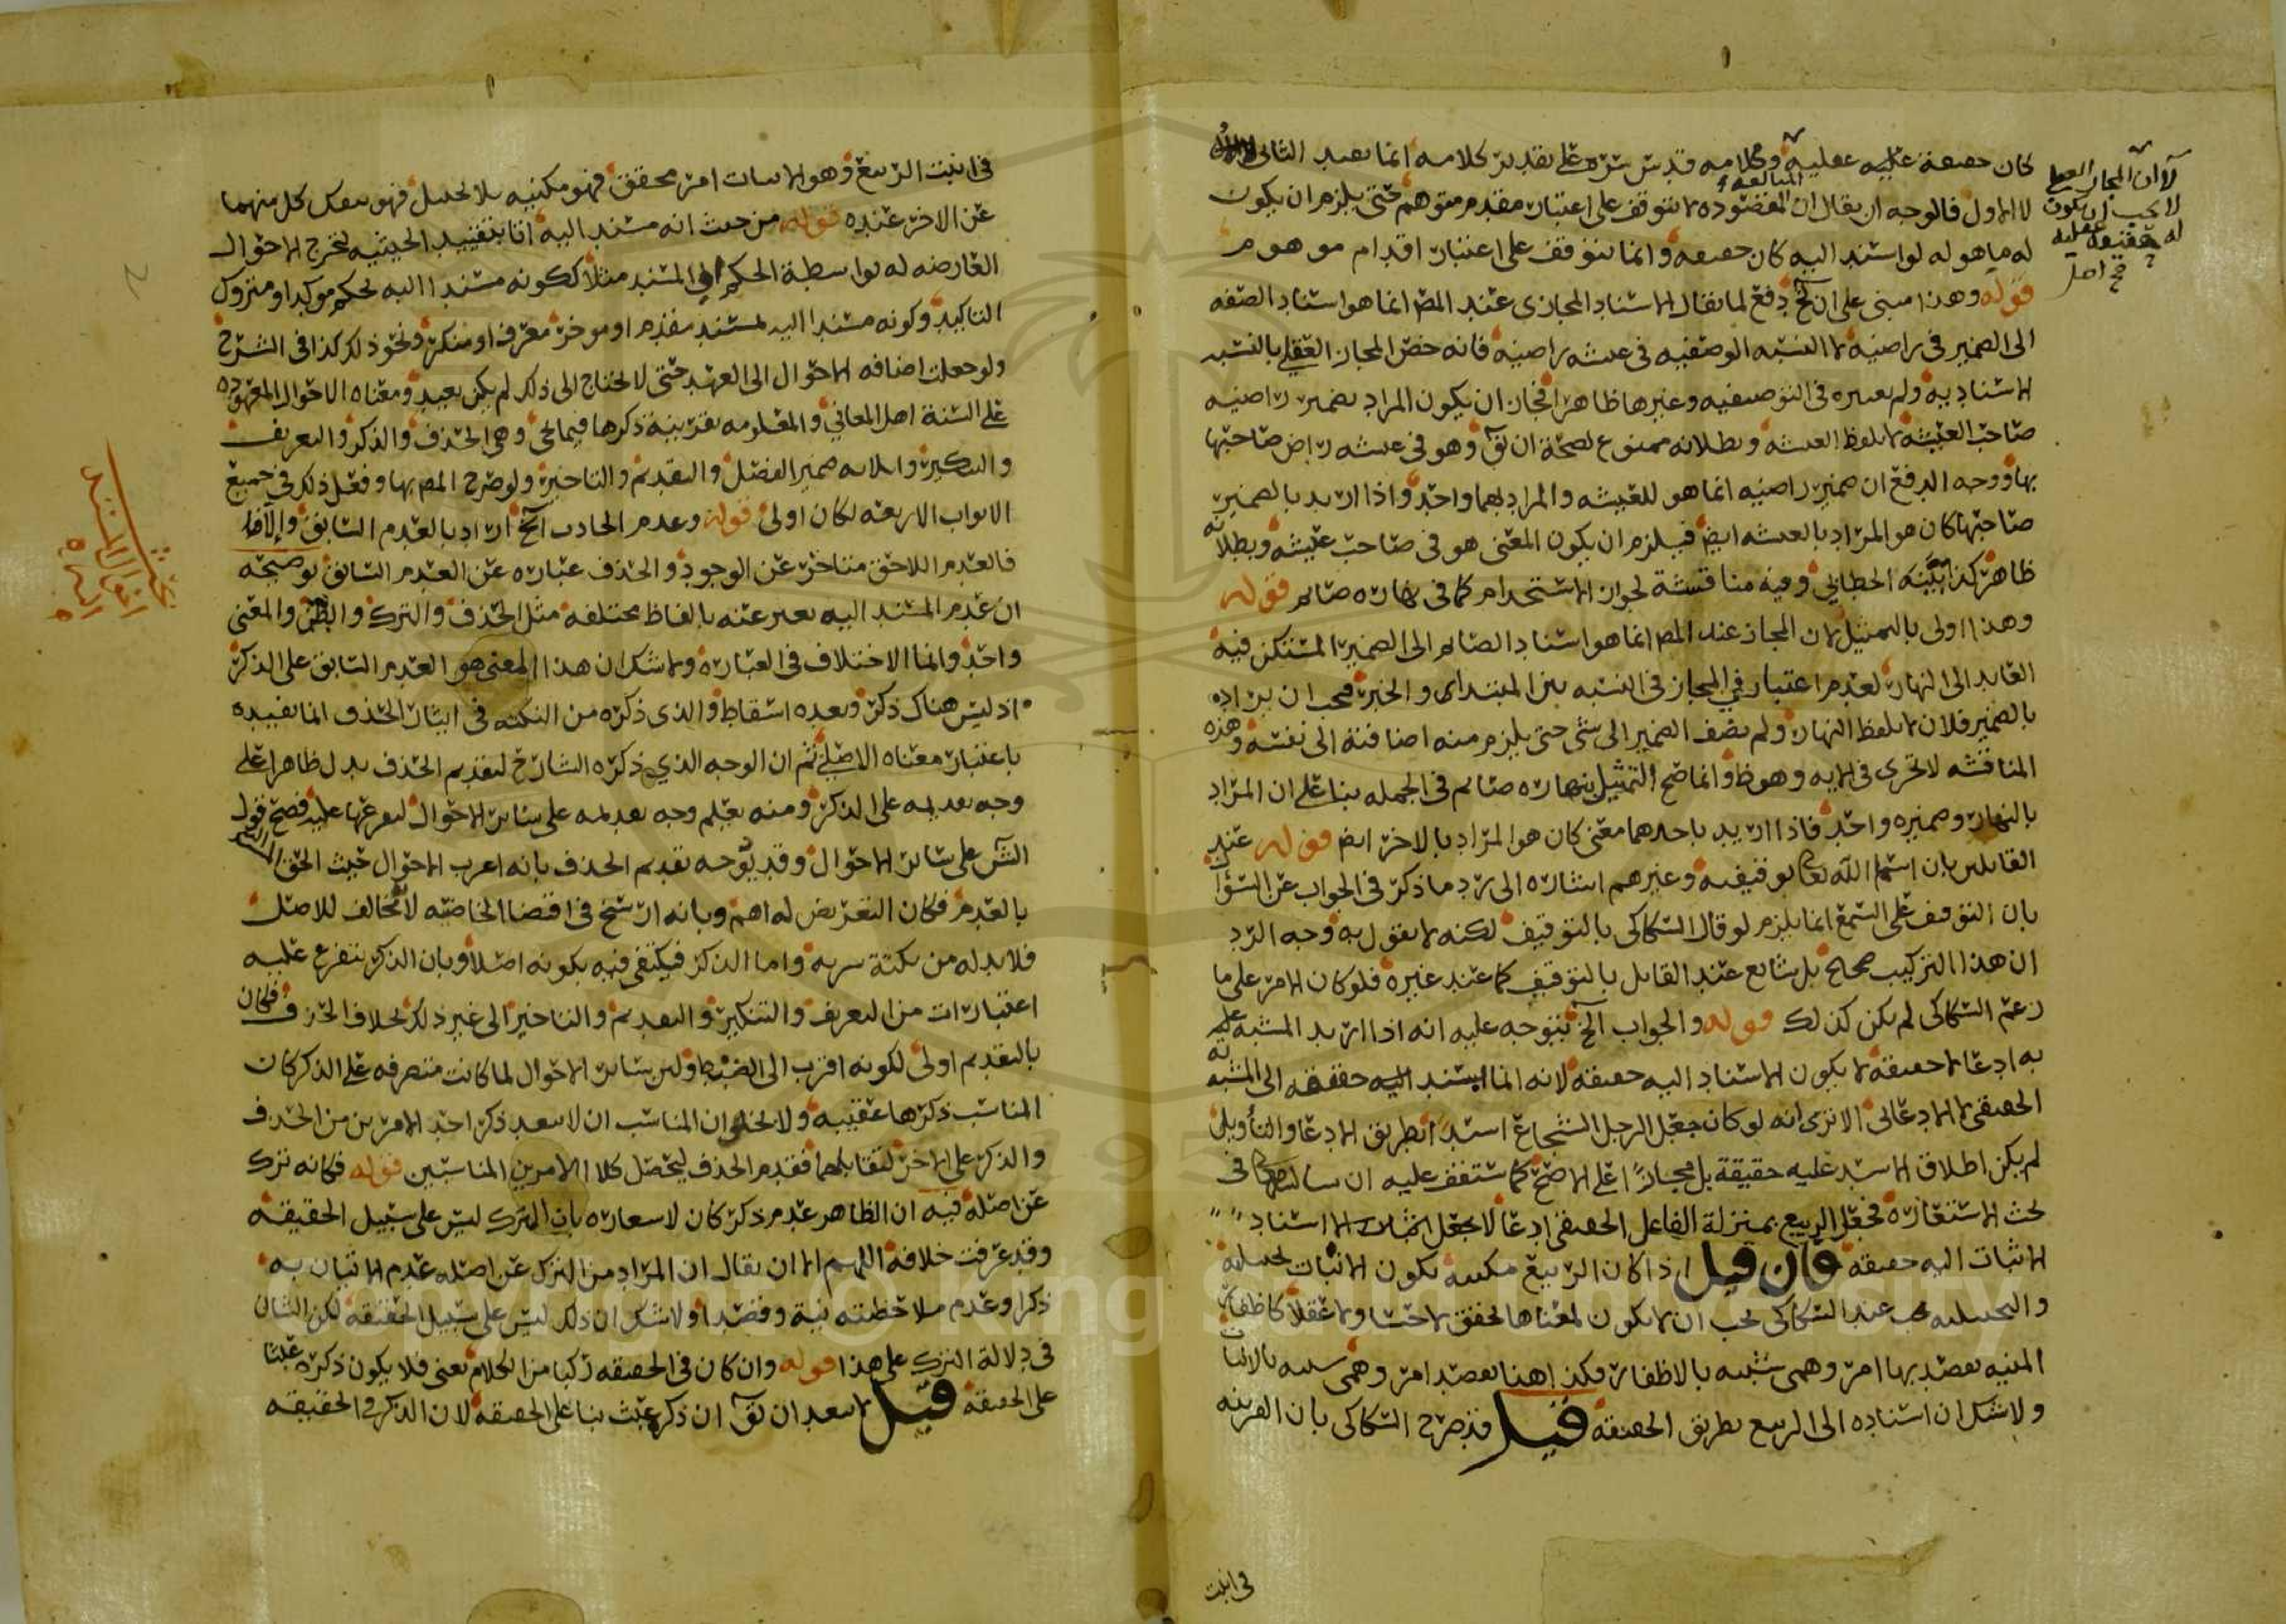 كان حقيقة عقلية وكلامه قدس سره على تقدير كلامه انما يفيد الثانى
لا الاول فالوجه ان يقال ان المبالغة المقصودة لا تتوقف على اعتبار مقدم متوهم حتى يلزم ان يكون
له ما هو له لو اسند اليه كان حقيقة وانما تتوقف على اعتبار اقدام موهوم
قوله وهذا مبنى على ان الخ دفع لما يقال الاسناد المجازى عند المص انما هو اسناد الصفه
الى الضمير فى راضيه لا النسبه الوصفيه فى عيشه راضيه فانه خص المجاز العقلى بالنسبه
الاسناديه ولم يعتبره فى التوصيفيه وغيرها ظاهرا فجاز ان يكون المراد بضمير راضيه
صاحب العيشه لا بلفظ العيشه وبطلانه ممنوع لصحة ان يق وهو فى عيشه راض صاحبها
بها ووجه الدفع ان ضمير راضيه انما هو للعيشه والمراد بهما واحد واذا اريد بالضمير
صاحبها كان هو المراد بالعيشه ايض فيلزم ان يكون المعنى هو فى صاحب عيشه وبطلانه
ظاهر كذا بينه الخطابي وفيه مناقشة لجواز الاستخدام كما فى نهاره صائم قوله
وهذا اولى بالتمثيل لان المجاز عند المص انما هو اسناد الصائم الى الضمير المستكن فيه
العايد الى النهار لعدم اعتبار المجاز فى النسبه بين المبتدا والخبر فيجب ان يراد
بالضمير فلان لا بلفظ النهار ولم يضف الضمير الى شى حتى يلزم منه اضافة الى نفسه وهذه
المناقشه لا تجرى فى الايه وهو ظ وانما صح التمثيل بنهاره صائم فى الجمله بنا على ان المراد
بالنهار وضميره واحد فاذا اريد باحدهما معنى كان هو المراد بالاخر ايض قوله عند
القائلين بان اسما الله تعا توقيفيه وغيرهم اشاره الى رد ما ذكر فى الجواب عن السؤال
بان التوقف على السمع انما يلزم لو قال السكاكى بالتوقيف لكنه لا يقول به وجه الرد
ان هذا التركيب صحيح بل شايع عند القايل بالتوقيف كما عند غيره فلو كان الامر على ما
زعم السكاكى لم يكن كذلك قوله والجواب الخ يتوجه عليه انه اذا اريد المشبه
به ادعا لا حقيقة لا يكون الاسناد اليه حقيقه لانه انما يسند اليه حقيقه الى المشبه به
الحقيقى لا الادعائى الا ترى انه لو كان جعل الرجل الشجاع اسدا بطريق الادعا والتأويل
لم يكن اطلاق الاسد عليه حقيقة بل مجازا على الاصح كما ستقف عليه ان شا الله تعالى فى
بحث الاستعاره فجعل الربيع بمنزلة الفاعل الحقيقى ادعا لا يجعل الاسناد
الاثبات اليه حقيقه فان قيل اذا كان الربيع مكنيه يكون الانبات تخييليه
والتخييليه يجب عند السكاكى يجب ان لا يكون لمعناها تحقق لا حسا ولا عقلا كاظفار
المنيه يقصد بها امر وهمى شبيه بالاظفار فكذا هنا يقصد امر وهمى شبيه بالانبات
ولا شك ان اسناده الى الربيع بطريق الحقيقه قيل قد صرح السكاكى بان القرينه
فى انبت
لا ان المجاز العقلى
لا يجب ان يكون
له حقيقة عقلية
صح اصل
فى انبت الربيع وهو الانبات امر محقق فهو مكنيه بلا تخييل فهو ينفك كل منهما
عن الاخر عنده قوله من حيث انه مسند اليه انما بتقييد الحيثيه لتخرج الاحوال
العارضه له بواسطة الحكم او المسند مثلا ككونه مسندا اليه لحكم موكد او متروك
التاكيد وكونه مسندا اليه لمسند مقدم او موخر معرف او منكر ونحو ذلك كذا فى الشرح
ولو جعلت اضافه الاحوال الى العهد حتى لا يحتاج الى ذلك لم يكن بعيد ومعناه الاحوال المعهوده
على السنة اهل المعاني والمعلومه بقرينة ذكرها فيما يجى وهى الحذف والذكر والتعريف
والتنكير وايلاه ضمير الفصل والتقديم والتاخير ولو صرح المص بها وفعل ذلك فى جميع
الابواب الاربعه لكان اولى قوله وعدم الحادث الخ اراد بالعدم السابق والا
فالعدم اللاحق متاخر عن الوجود والحذف عباره عن العدم السابق توضيحه
ان عدم المسند اليه يعبر عنه بالفاظ مختلفه مثل الحذف والترك والمعنى
واحد وانما الاختلاف فى العباره ولا شك ان هذا المعنى هو العدم السابق على الذكر
اذ ليس هناك ذكر وبعده اسقاط والذى ذكره من النكته فى ايثار الحذف انما تفيده
باعتبار معناه الاصلى ثم ان الوجه الذي ذكره الشارح لتقديم الحذف يدل ظاهرا على
وجه تقديمه على الذكر ومنه يعلم وجه تقديمه على سائر الاحوال لتفرعها عليه فصح قول
الش على سائر الاحوال وقد يوجه تقديم الحذف بانه اغرب الاحوال حيث الحق
بالعدم فكان التعريض له اهم وبانه ارسخ فى اقتضا الخاصيه لانه مخالف للاصل
فلا بد له من نكتة سريه واما الذكر فيكتفى فيه بكونه اصلا وبان الذكر يتفرع عليه
اعتبارات من التعريف والتنكير والتقديم والتاخير الى غير ذلك بخلاف الحذف فكان
بالتقديم اولى لكونه اقرب الى الضبط ولان سائر الاحوال لما كانت متفرعه على الذكر كان
المناسب ذكرها عقيبه ولا يخلو ان المناسب ان لا يبعد ذكر احد الامرين من الحذف
والذكر على الاخر لتقابلهما فقدم الحذف ليحصل كلا الامرين المناسبين قوله فكانه ترك
عن اصله فيه ان الظاهر عدم ذكر كان لاشعاره بان الترك ليس على سبيل الحقيقه
وقد عرفت خلافه اللهم الا ان يقال ان المراد من الترك عن اصله عدم الاتيان به
ذكرا وعدم ملاحظته نية وقصدا ولا شك ان ذلك ليس على سبيل الحقيقه لكن الشان
فى دلالة الترك على هذا قوله وان كان فى الحقيقه ركنا من الكلام يعنى فلا يكون ذكره عبثا
على الحقيقه قيل لا يبعد ان يق ان ذكره عبث بنا على الحقيقه لان الذكر فى الحقيقه
بحث
المسند